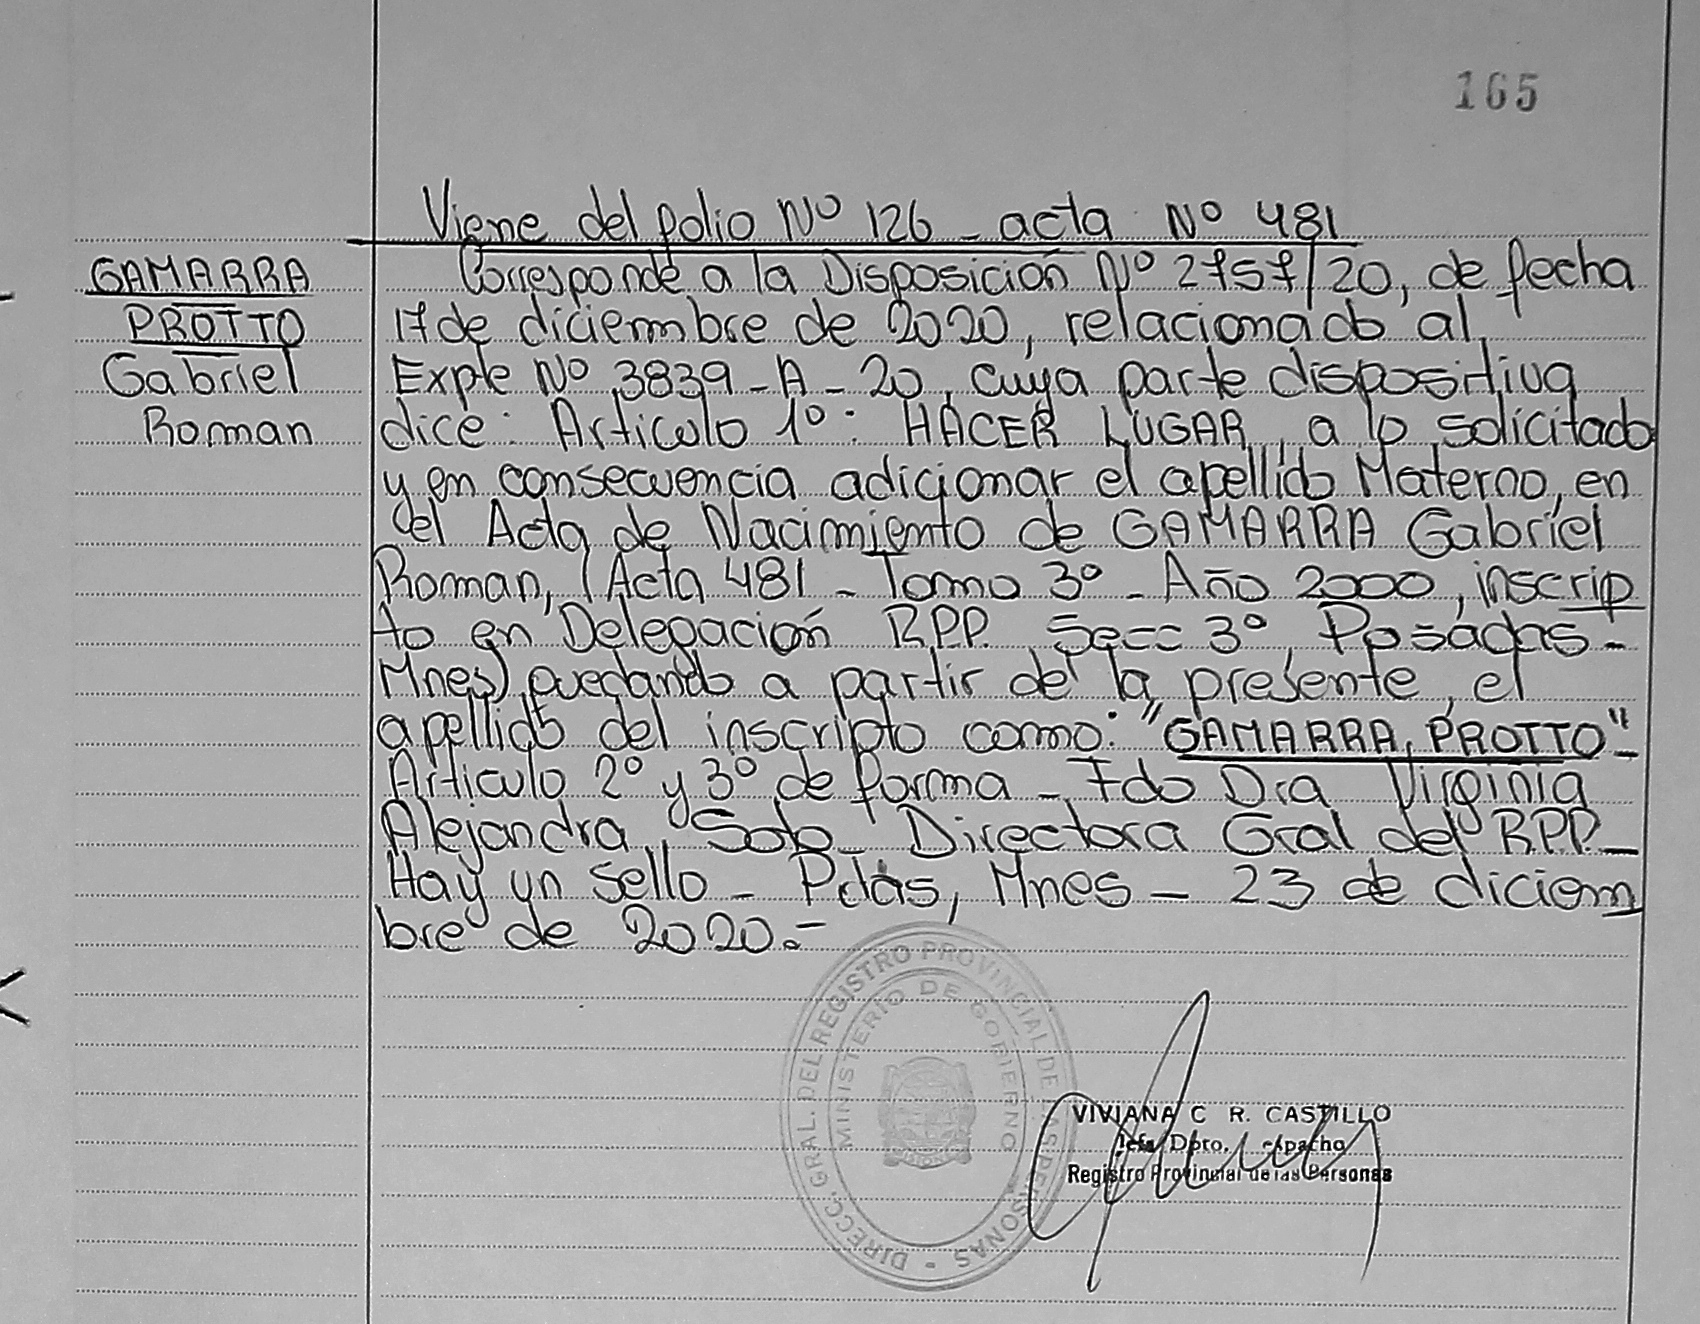 165
Viene del folio Nº 126 - acta Nº 481
GAMARRA
PROTTO
Gabriel
Roman
Corresponde a la Disposición Nº 2757/20, de fecha
17 de diciembre de 2020, relacionado al
Expte Nº 3839-A-20, cuya parte dispositiva
dice: Articulo 1º: HACER LUGAR, a lo solicitado
y en consecuencia adicionar el apellido Materno, en
el Acta de Nacimiento de GAMARRA Gabriel
Roman, (Acta 481 - Tomo 3º - Año 2000, inscrip
to en Delegación R.P.P. Secc 3º, Posadas -
Mnes) quedando a partir de la presente, el
apellido del inscripto como: "GAMARRA, PROTTO"-
Articulo 2º y 3º de forma - Fdo Dra Virginia
Alejandra Soto - Directora Gral del RPP -
Hay un sello - Pdas, Mnes - 23 de diciem
bre de 2020.-
DIRECC. GRAL. DEL REGISTRO PROVINCIAL DE LAS PERSONAS
MINISTERIO DE GOBIERNO
VIVIANA C R. CASTILLO
Jefa Dpto.
Registro Provincial de las Personas